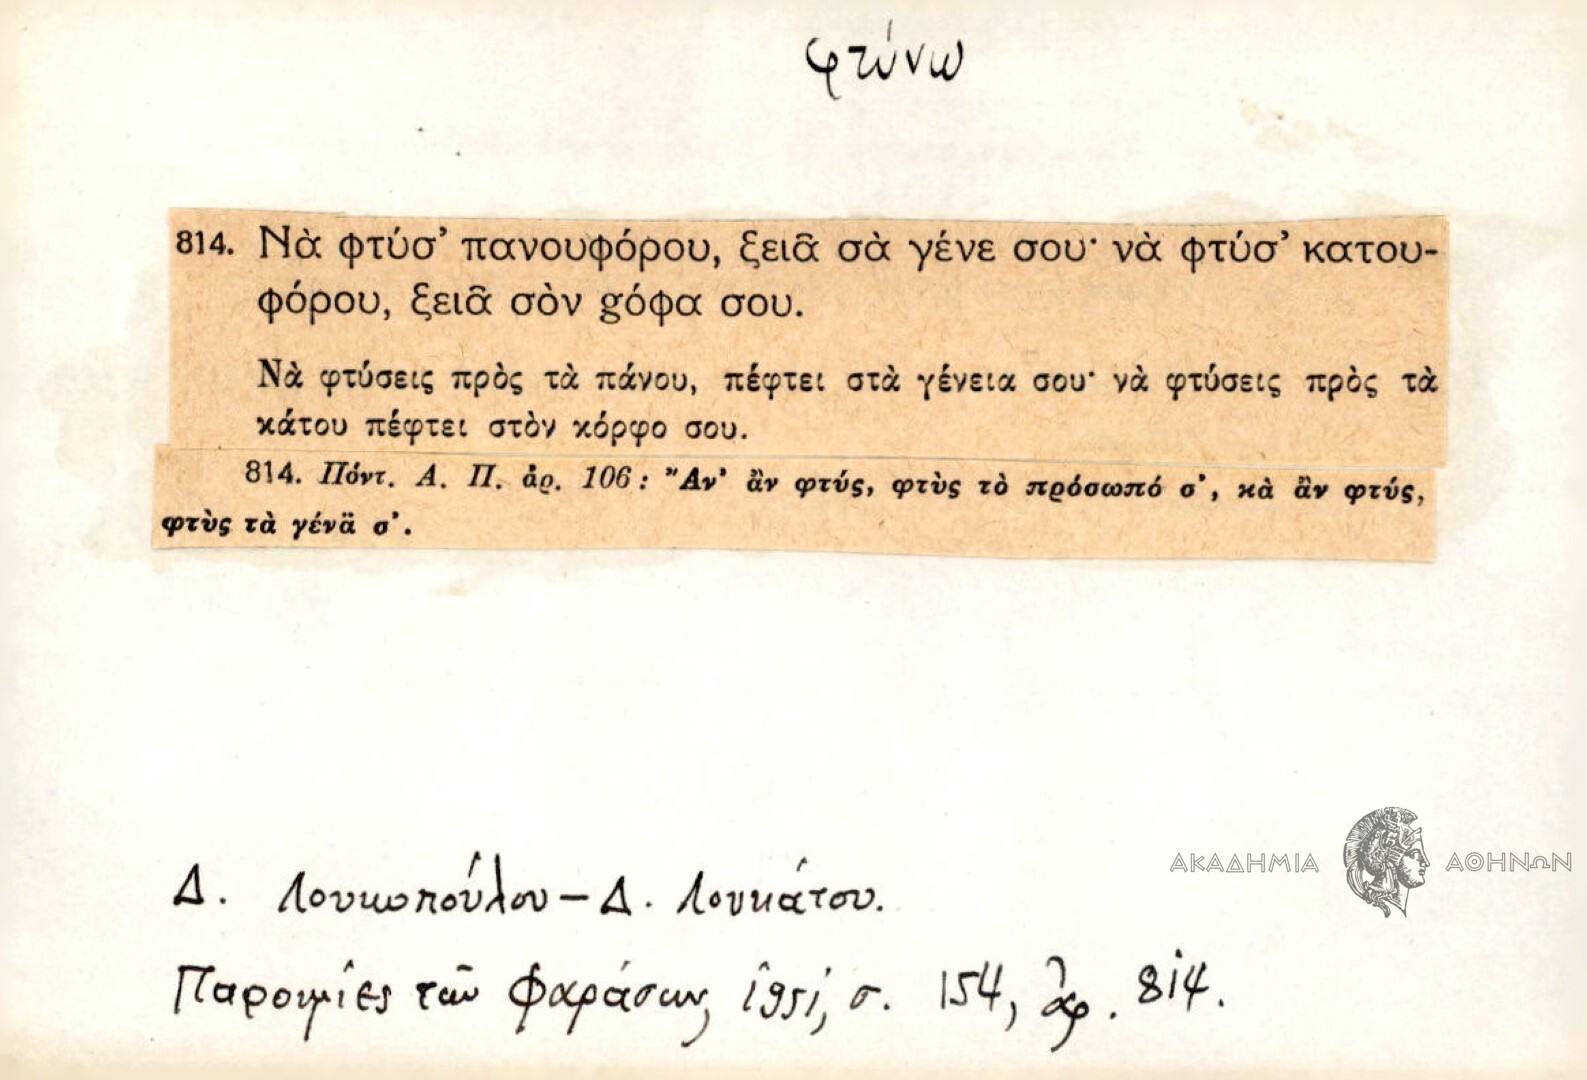 φτύνω
814. Νὰ φτύσ’ πανουφόρου, ξειᾶ σὰ γένε σου· νὰ φτύσ’ κατου-
φόρου, ξειᾶ σὸν gόφα σου.
Νὰ φτύσεις πρὸς τὰ πάνου, πέφτει στὰ γένεια σου· νὰ φτύσεις πρὸς τὰ
κάτου πέφτει στὸν κόρφο σου.
814. Πόντ. Α. Π. ἀρ. 106: Ἄν’ ἂν φτύς, φτὺς τὸ πρόσωπό σ’, κὰ ἂν φτύς,
φτὺς τὰ γένα̈ σ’.
ΑΚΑΔΗΜΙΑ ΑΘΗΝΩΝ
Δ. Λουκοπούλου – Δ. Λουκάτου.
Παροιμίες τῶν Φαράσων, 1951, σ. 154, ἀρ. 814.